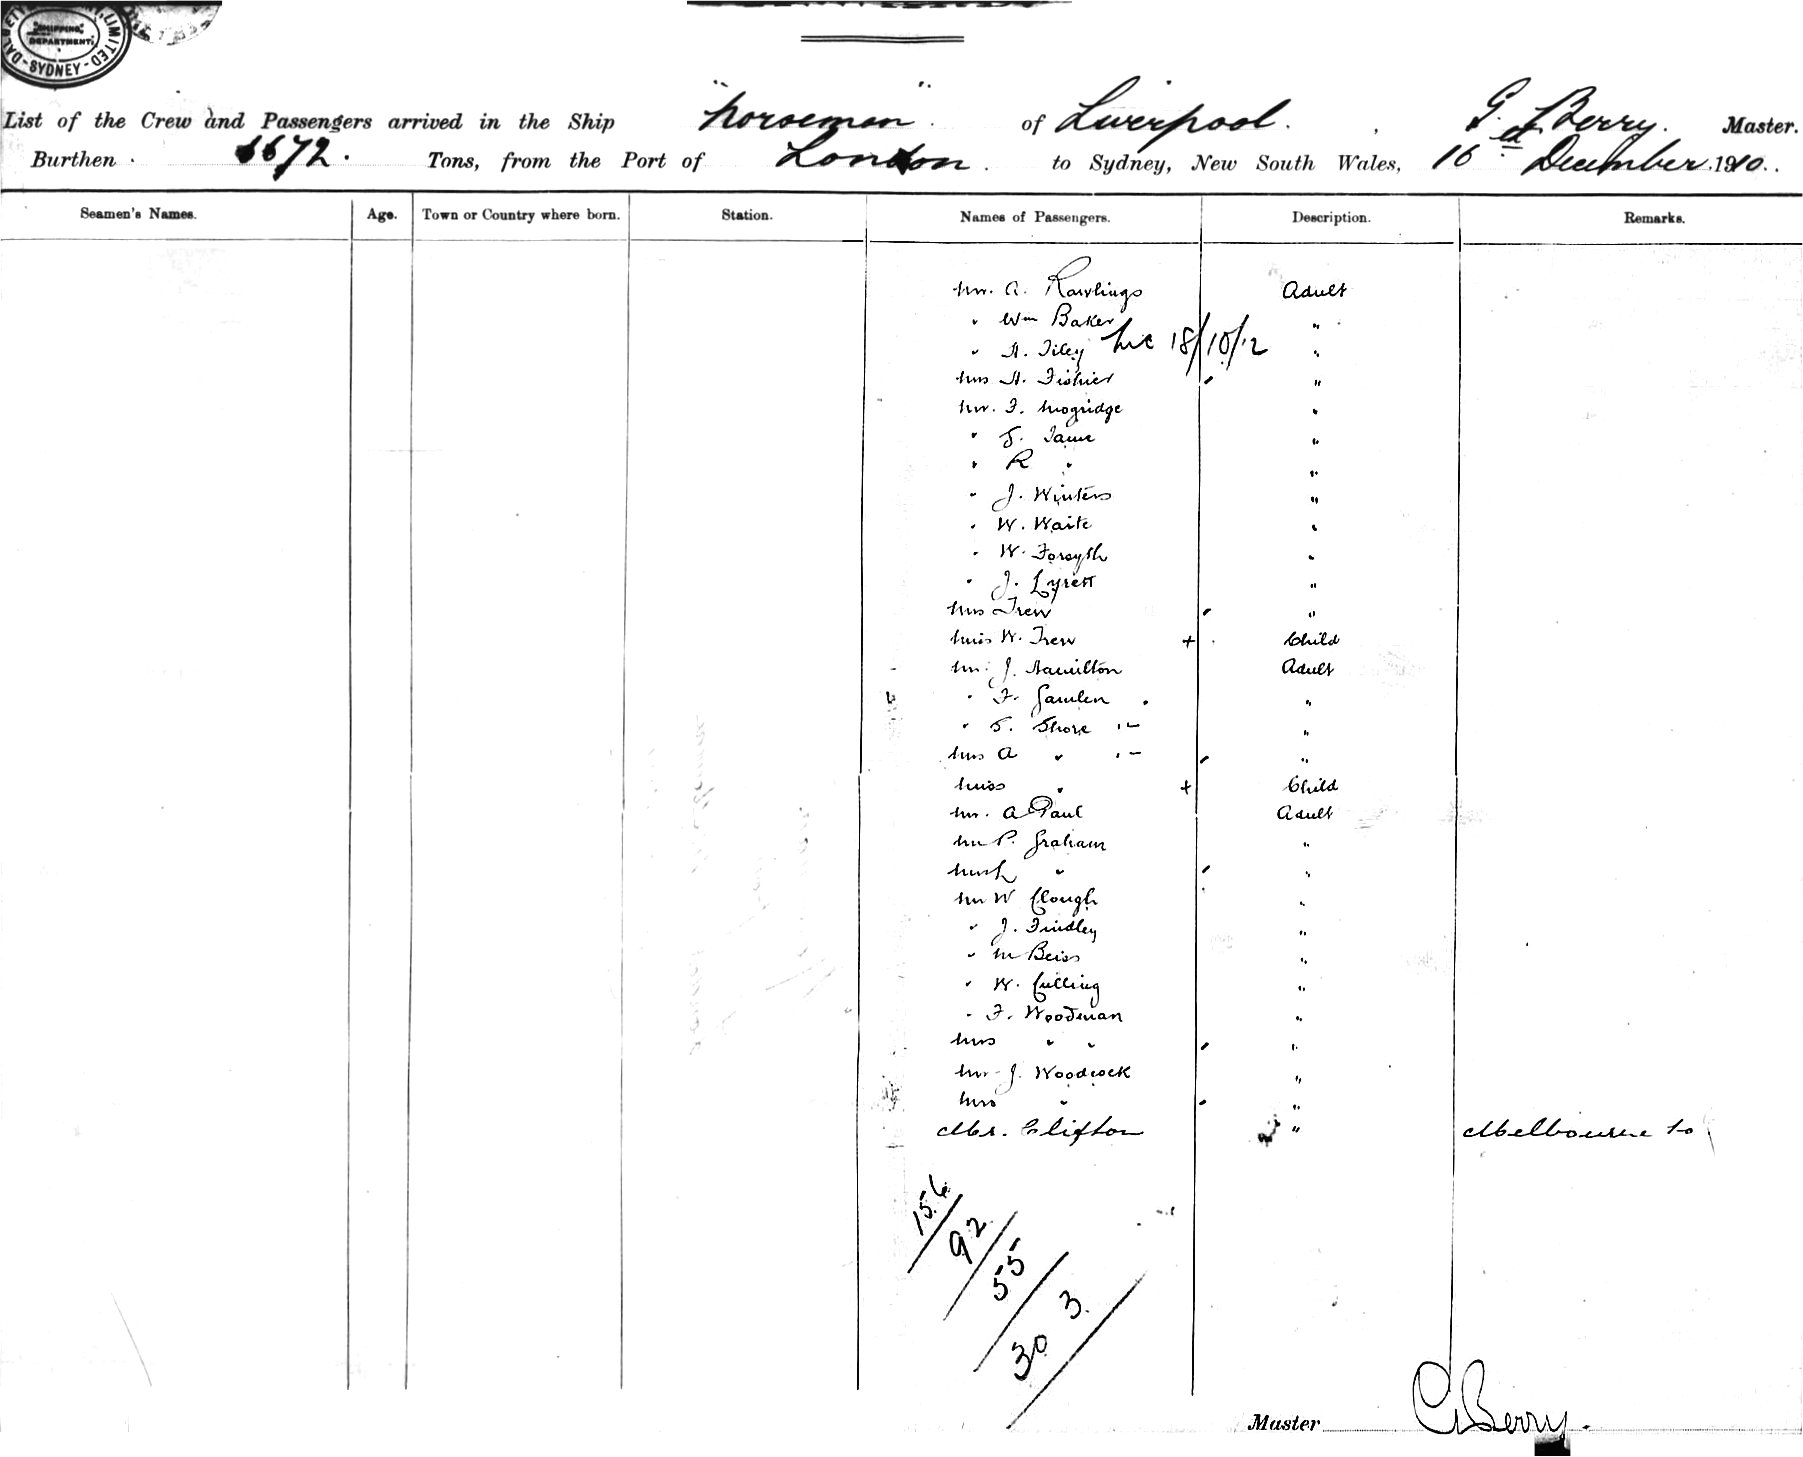 SHIPPING
DEPARTMENT
SYDNEY
LIMITED
List of the Crew and Passengers arrived in the Ship "Norseman". of Liverpool. , G. Berry. Master.
Burthen 6672. Tons, from the Port of London. to Sydney, New South Wales, 16 December 1910.
Seamen's Names. Age. Town or Country where born. Station. Names of Passengers. Description. Remarks.
Mr. A. Rawlings Adult
" Wm Baker "
" H. Tiley 18/10/12 "
Mrs H. Fisher "
Mr. F. Mogridge "
" S. Tame "
" R " "
" J. Winters "
" W. Waite "
" W. Forsyth "
" J. Lyrett "
Mrs Trew "
Miss W. Trew + Child
Mr. J. Hamilton Adult
" F. Gamlen "
" S. Shore "
Mrs A " "
Miss " + Child
Mr. A Paul Adult
Mr P. Graham "
Mrs L " "
Mr W Clough "
" J. Findley "
" M Beiss "
" W. Culling "
" F. Woodman "
Mrs " " "
Mr J. Woodcock "
Mrs " "
Mr. Clifton " Melbourne to
156/
92/
55/
3
30/
Master C Berry.